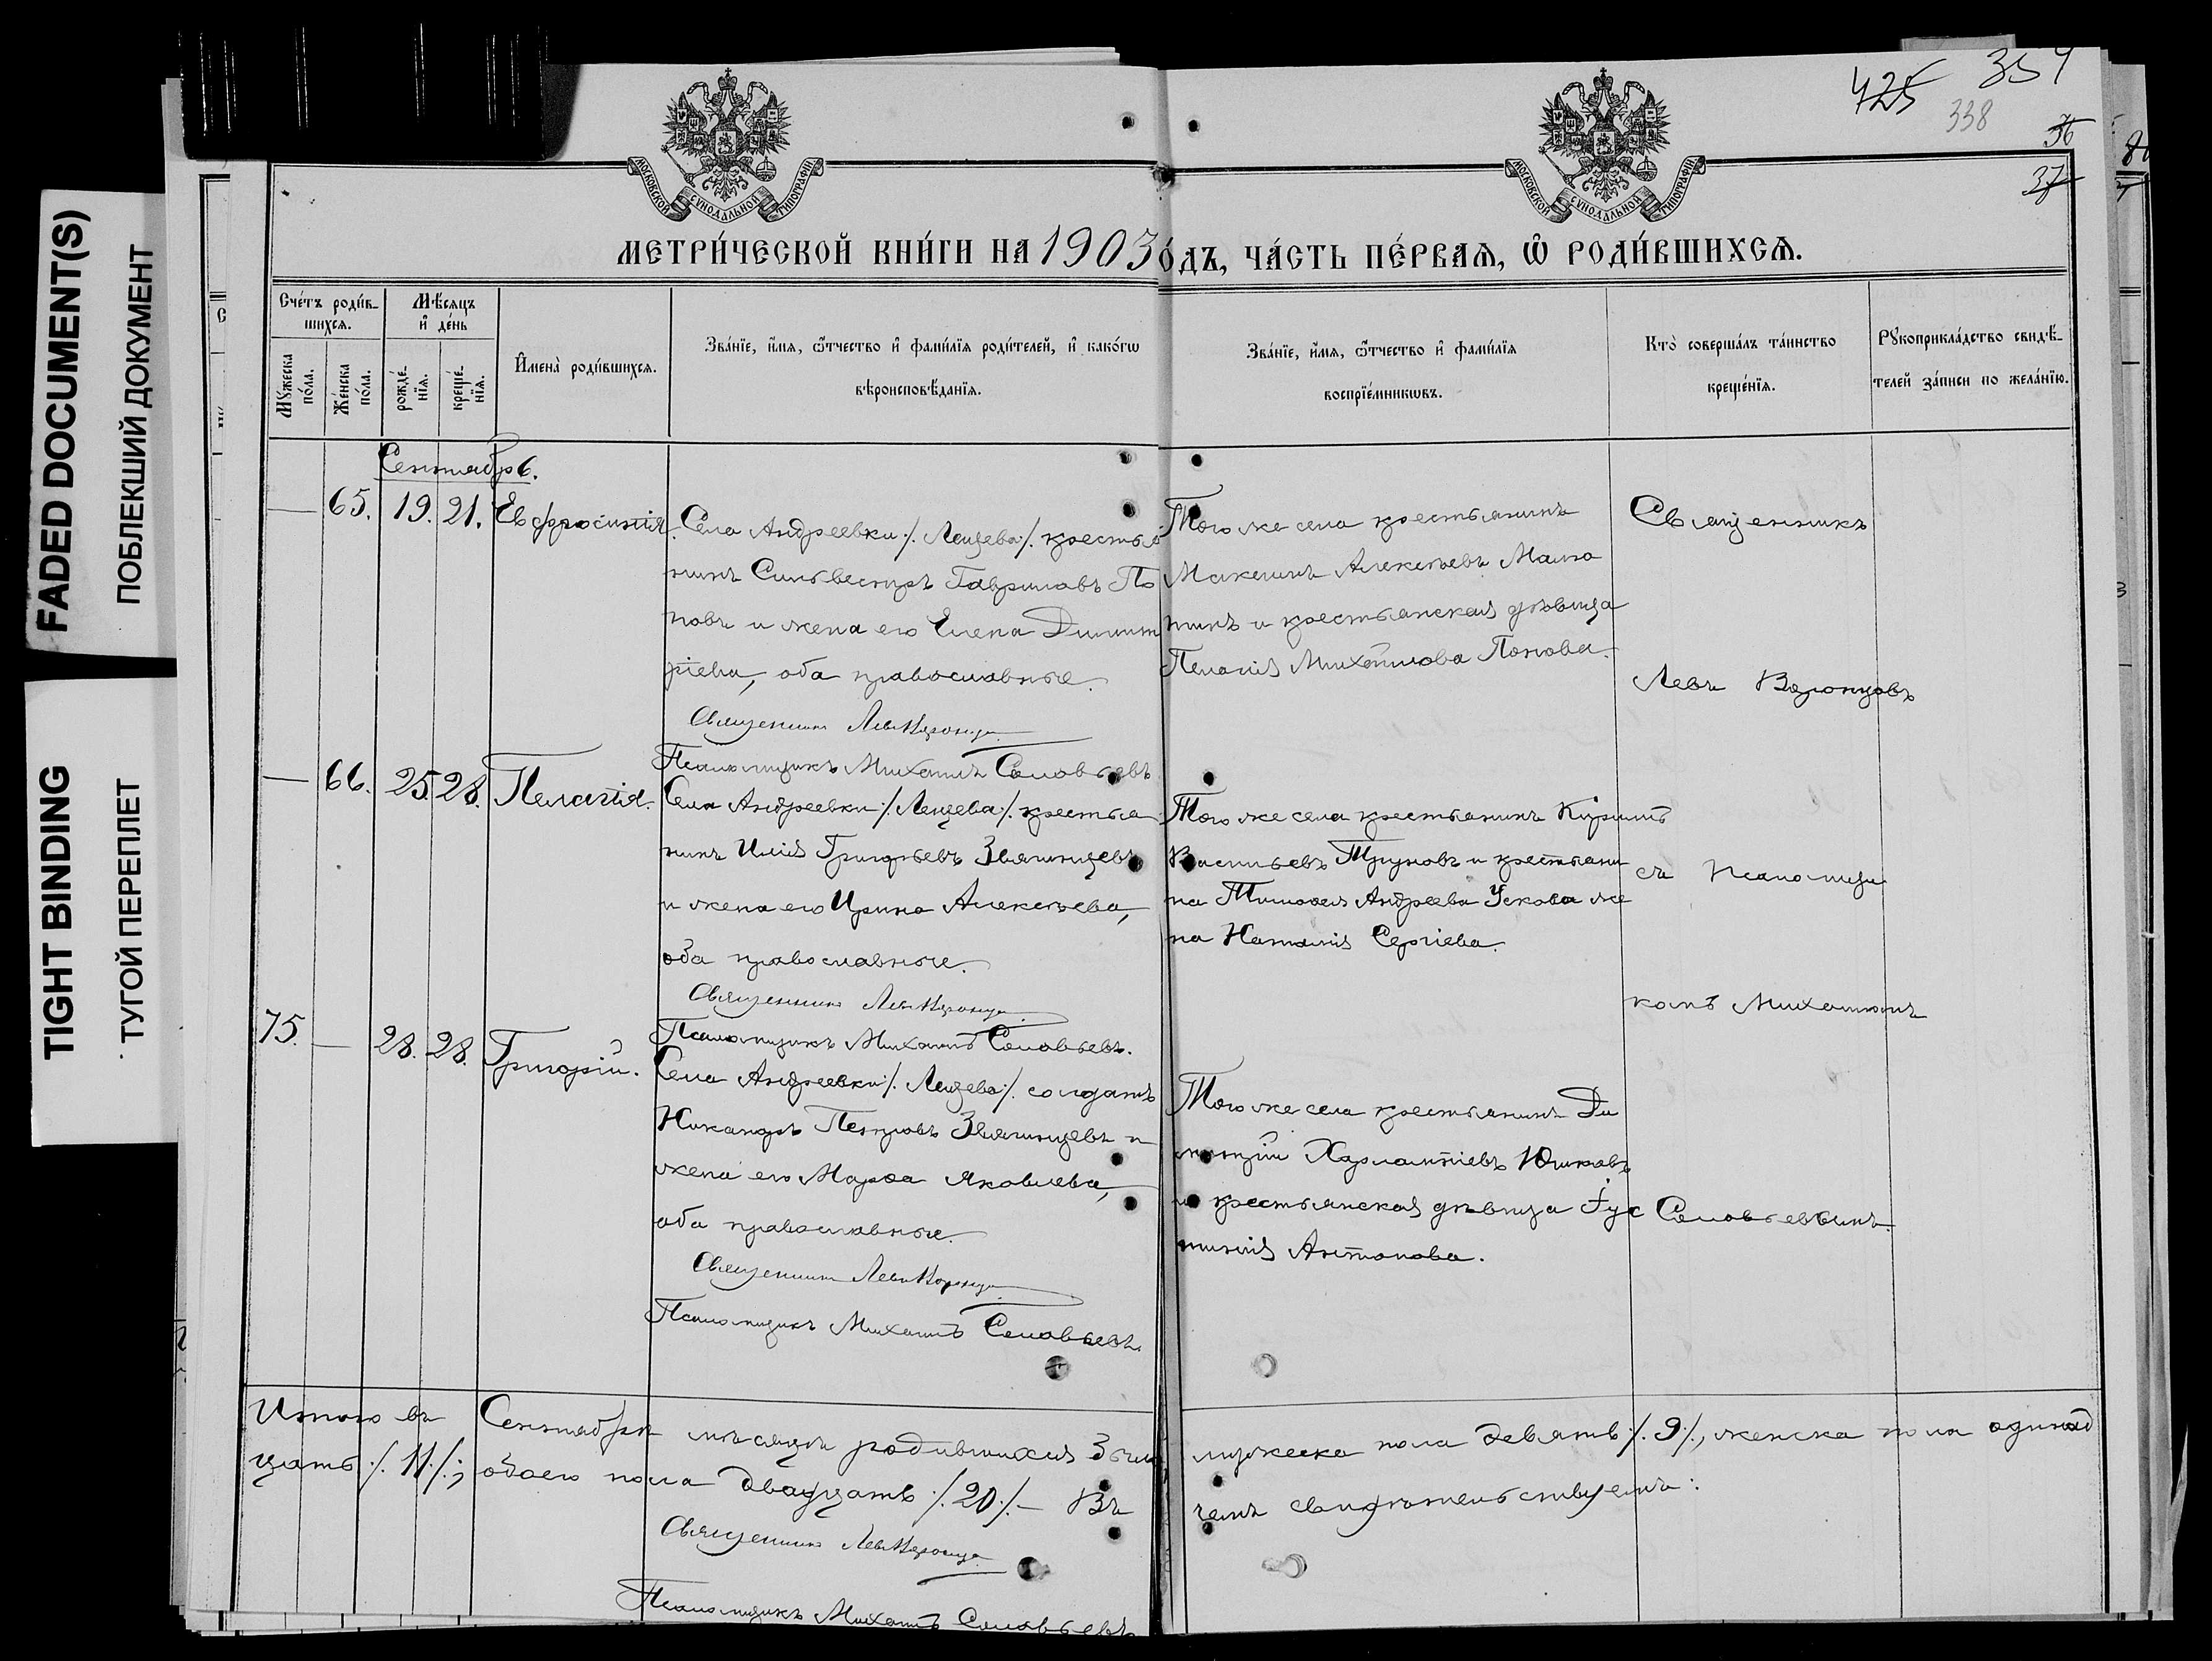 FADED DOCUMENT(S)
ПОБЛЕКШИЙ ДОКУМЕНТ
TIGHT BINDING
ТУГОЙ ПЕРЕПЛЕТ
425 354
338
36
37
МОСКОВСКОЙ СѴНОДАЛЬНОЙ ТИПОГРАФІИ
МОСКОВСКОЙ СѴНОДАЛЬНОЙ ТИПОГРАФІИ
МЕТРИ́ЧЕСКОЙ КНИ́ГИ НА 1903 О́ДЪ, ЧА́СТЬ ПЕ́РВАѦ, Ѡ҆ РОДИ́ВШИХСѦ.
Сче́тъ роди́в-
шихсѧ.
Мѣ́сѧцъ
и҆ де́нь
Мꙋ́жеска
по́ла.
Же́нска
по́ла.
рожде́-
нїѧ.
креще́-
нїѧ.
И҆мена̀ роди́вшихсѧ.
Зва́нїе, и҆́мѧ, ѻ҆́тчество и҆ фами́лїѧ роди́телей, и҆ како́гѡ
вѣроисповѣ́данїѧ.
Зва́нїе, и҆́мѧ, ѻ҆́тчество и҆ фами́лїѧ
воспрїе́мникѡвъ.
Кто̀ соверша́лъ та́инство
креще́нїѧ.
Рꙋкоприкла́дство свидѣ́-
телей за́писи по жела́нїю.
Сентябрь.
— 65. 19. 21. Евфросинія.
Села Андреевки /. Лещева /. крестья
нинъ Сильвестръ Гавриловъ По
повъ и жена его Елена Димит
ріева, оба православные.
Священникъ Левъ
Псаломщикъ Михаилъ Соловьевъ
Того же села крестьянинъ
Алексѣевъ
нинъ и крестьянская дѣвица
Пелагія Михайлова Попова.
— 66. 25. 28. Пелагія.
Села Андреевки /. Лещева /. крестья
нинъ Илія Григорьевъ Звягинцевъ
и жена его Ирина Алексѣева,
оба православные.
Священникъ Левъ
Псаломщикъ Михаилъ Соловьевъ.
Того же села крестьянинъ Кириллъ
Васильевъ Труновъ и крестьяни
на Тимофея Андреева Ускова же
на Наталія Сергіева.
75. — 28. 28. Григорій.
Села Андреевки /. Лещева /. солдатъ
Никандръ Петровъ Звягинцевъ и
жена его Марѳа Яковлева,
оба православные.
Священникъ Левъ
Псаломщикъ Михаилъ Соловьевъ.
Того же села крестьянинъ Ди
митрій Харлампіевъ Юшковъ
и крестьянская дѣвица Іус
тинія Антонова.
Священникъ
Левъ
съ Псаломщи
комъ Михаиломъ
Соловьевымъ.
Итого въ Сентябрѣ мѣсяцѣ родившихся мужеска пола девять /. 9 /., женска пола одинад
цать /. 11 /.; обоего пола двадцать /. 20 /. — Въ чемъ свидѣтельствуемъ:
Священникъ Левъ
Псаломщикъ Михаилъ Соловьевъ